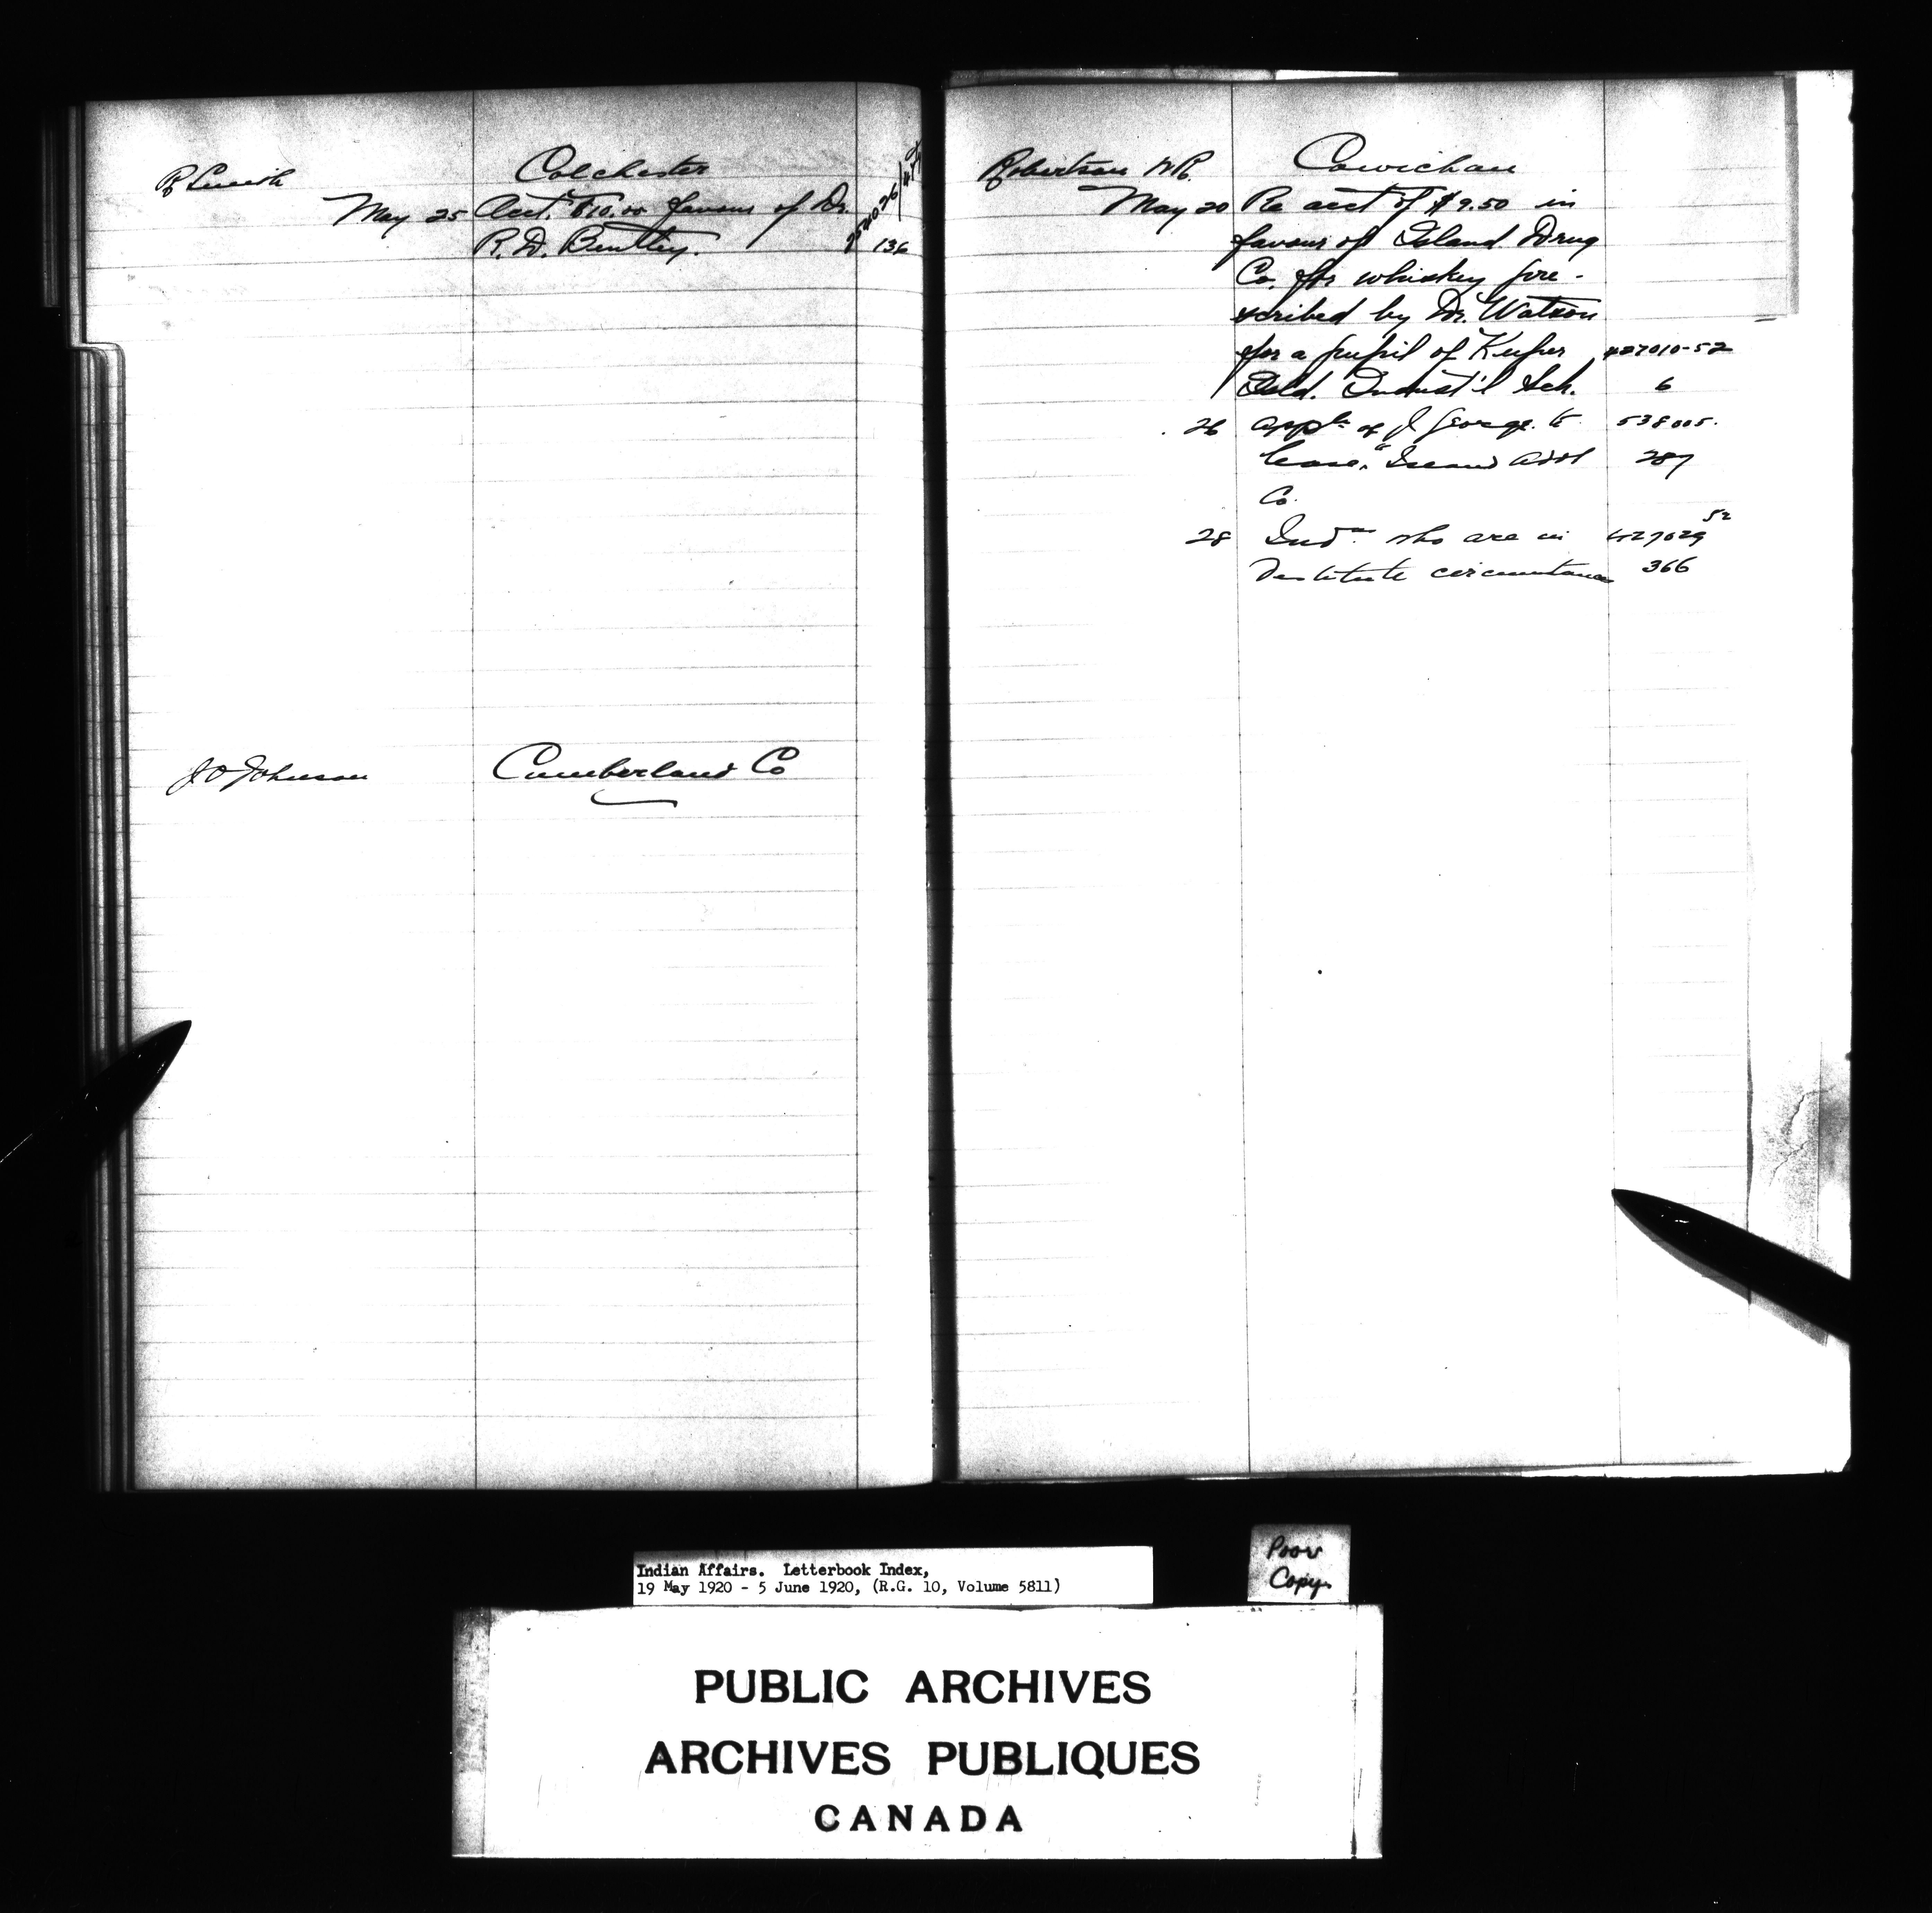 R Smith
Colchester
May 25 Acct. $10.00 favour of Dr.
R. D. Bentley.
136
J O Johnson
Cumberland Co
Robertson W.R.
Cowichan
May 20 Re acct of $9.50 in
favour of Island Drug
Co. for whiskey pre-
scribed by Dr. Watson
for a pupil of Kuper 427010-52
Isld. Indust'l Sch. 6
26 Appln of J George to 538005.
lease 287
Co.
28 Inds. who are in 427029 52
destitute circumstances 366
Indian Affairs. Letterbook Index,
19 May 1920 - 5 June 1920, (R.G. 10, Volume 5811)
Poor
Copy.
PUBLIC ARCHIVES
ARCHIVES PUBLIQUES
CANADA